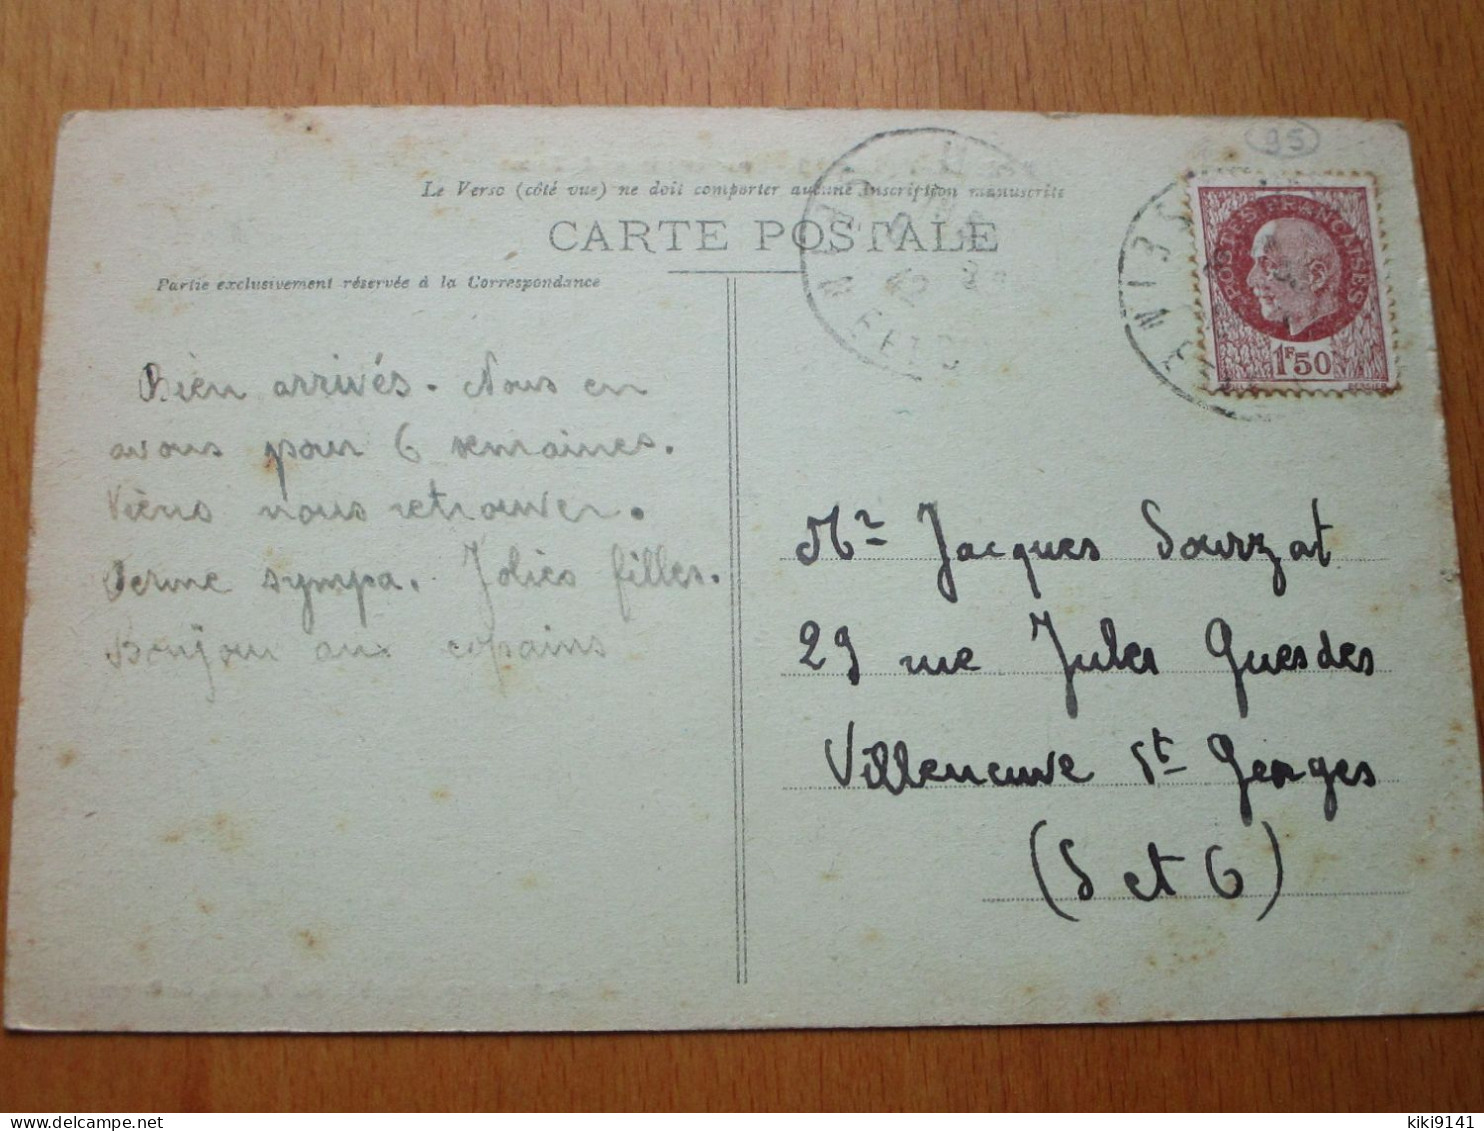 95
Le Verso (côté vue) ne doit comporter aucune inscription manuscrite
CARTE POSTALE
Partie exclusivement réservée à la Correspondance
POSTES FRANÇAISES
1F50
BERSIER
Bien arrivés. Nous en
avons pour 6 semaines.
Viens nous retrouver.
Ferme sympa. Jolies filles.
Bonjour aux copains
Mr Jacques Sourzat
29 rue Jules Guesdes
Villeneuve St Georges
(S et O)
delcampe.net
kiki9141